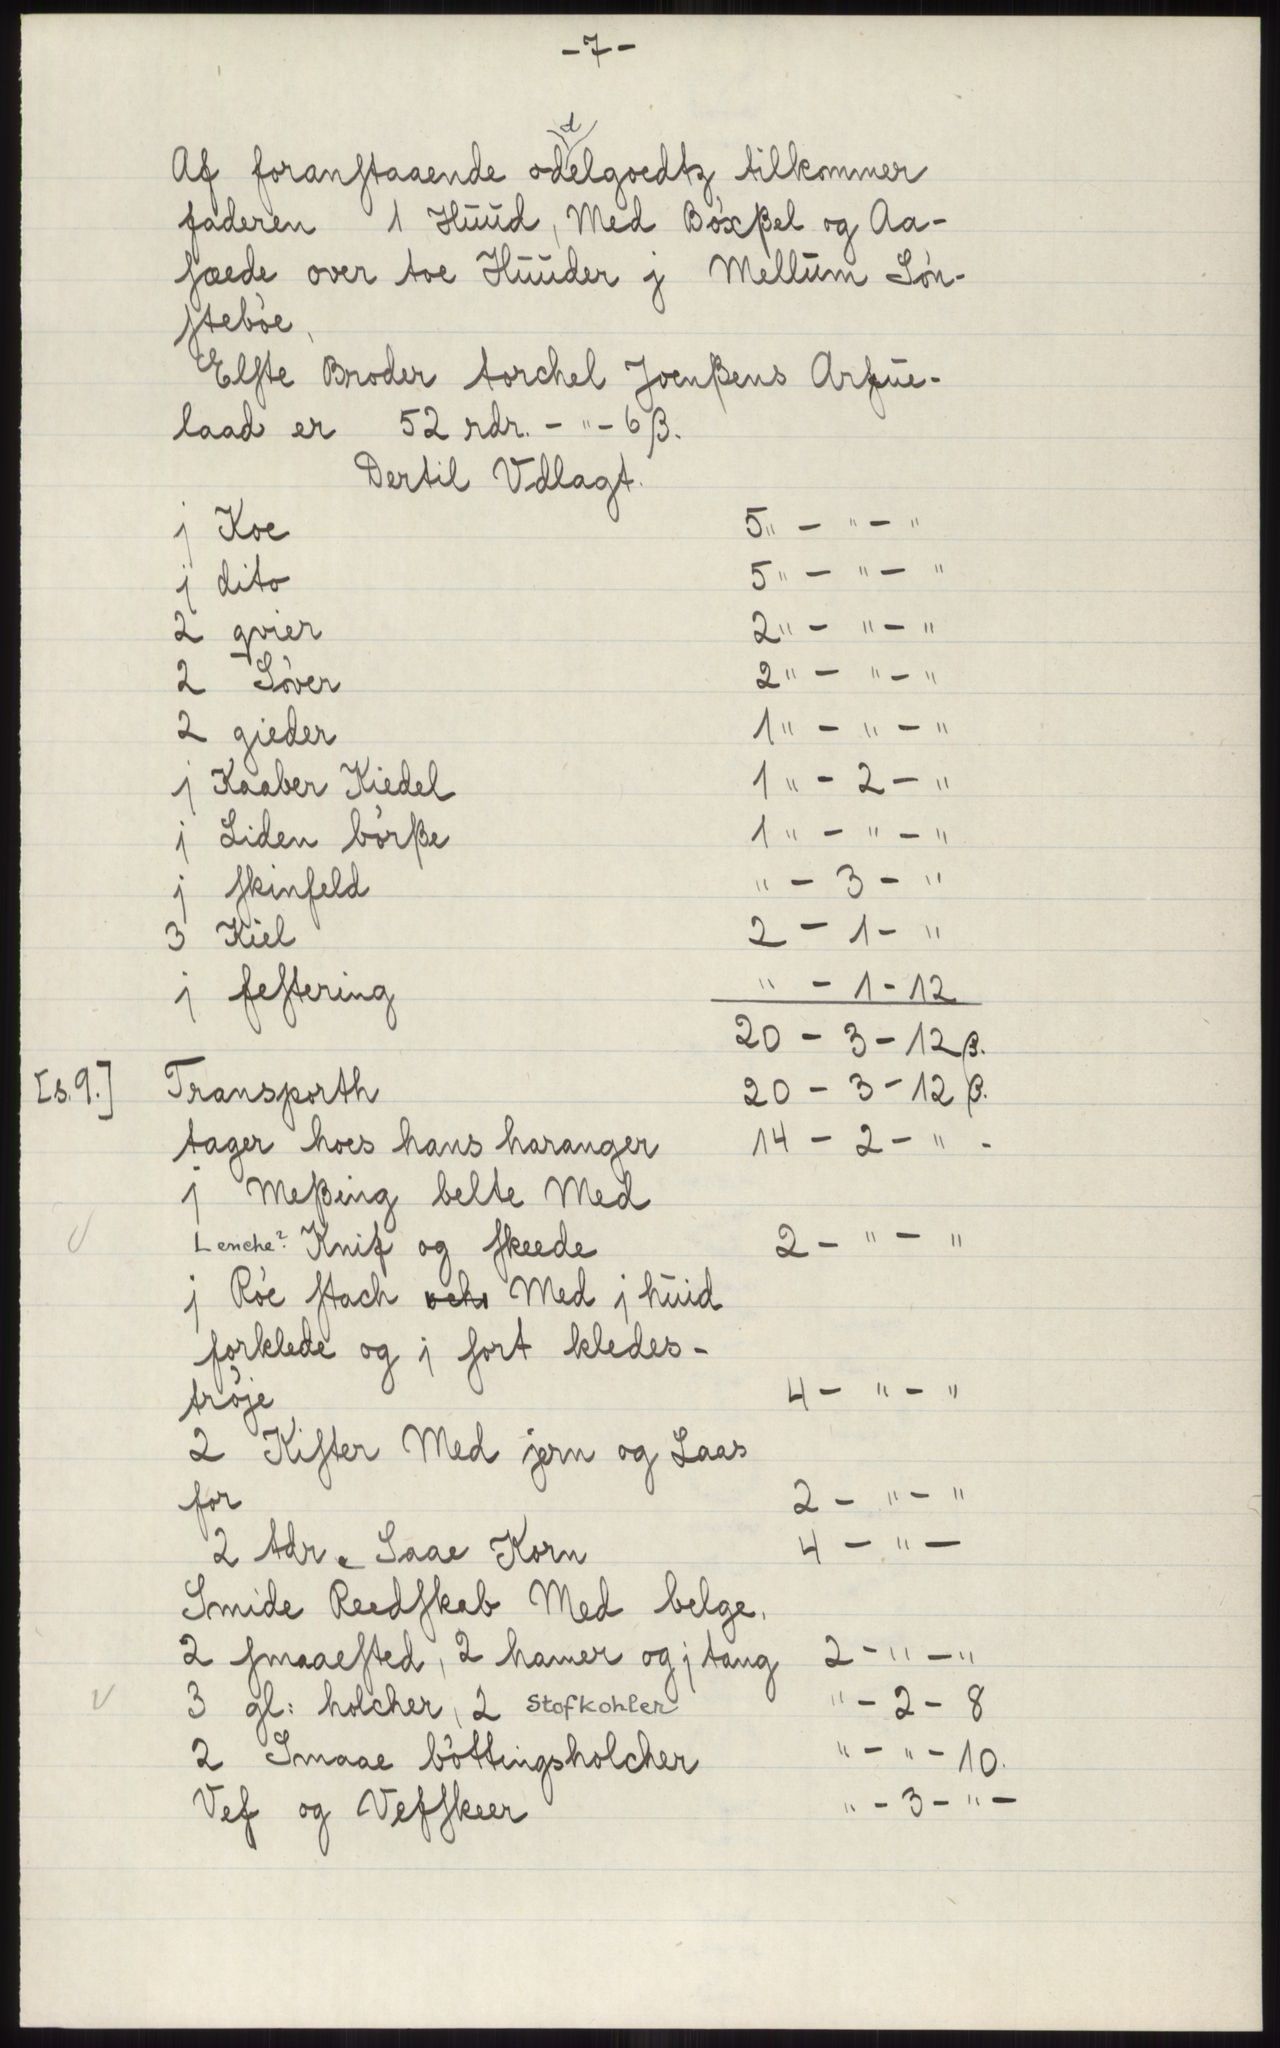 -7-
Af foranstaaende oddelgoedtz tilkommer
faderen 1 Huud, Med Bóxßel og Aa-
sæede over toe Huuder j Mellum Són-
stebóe,
Elste Broder torchel Joenßens Arfue-
laad er 52 rdr. - " - 6 β.
Dertil Vdlagt.
j Koe 5" - " - "
j dito 5" - " - "
2 qvier 2" - " - "
2 Sóver 2" - " - "
2 gieder 1" - " - "
j Kaaber Kiedel 1" - 2 - "
j Liden bórße 1" - " - "
j skinfeld " - 3 - "
3 Kiel 2 - 1 - "
j festering " - 1 - 12
20 - 3 - 12 β.
[s. 9.] Transporth 20 - 3 - 12 β.
tager hoes hans haranger 14 - 2 - " -
j Meßing belte Med
Lenche? Knif og skeede 2 - " - "
j Róe stach och Med j huid
forklede og j sort kledes-
tróje 4 - " - "
2 Kister Med jern og Laas
for 2 - " - "
2 tdr. Saae Korn 4 - " -
Smide Reedskab Med belge,
2 smaaested, 2 hamer og j tang 2 - " - "
3 gl: holcher, 2 Stofkohler " - 2 - 8
2 Smaae bóttingsholcher " - " - 10.
Vef og Vefskeer " - 3 - " -